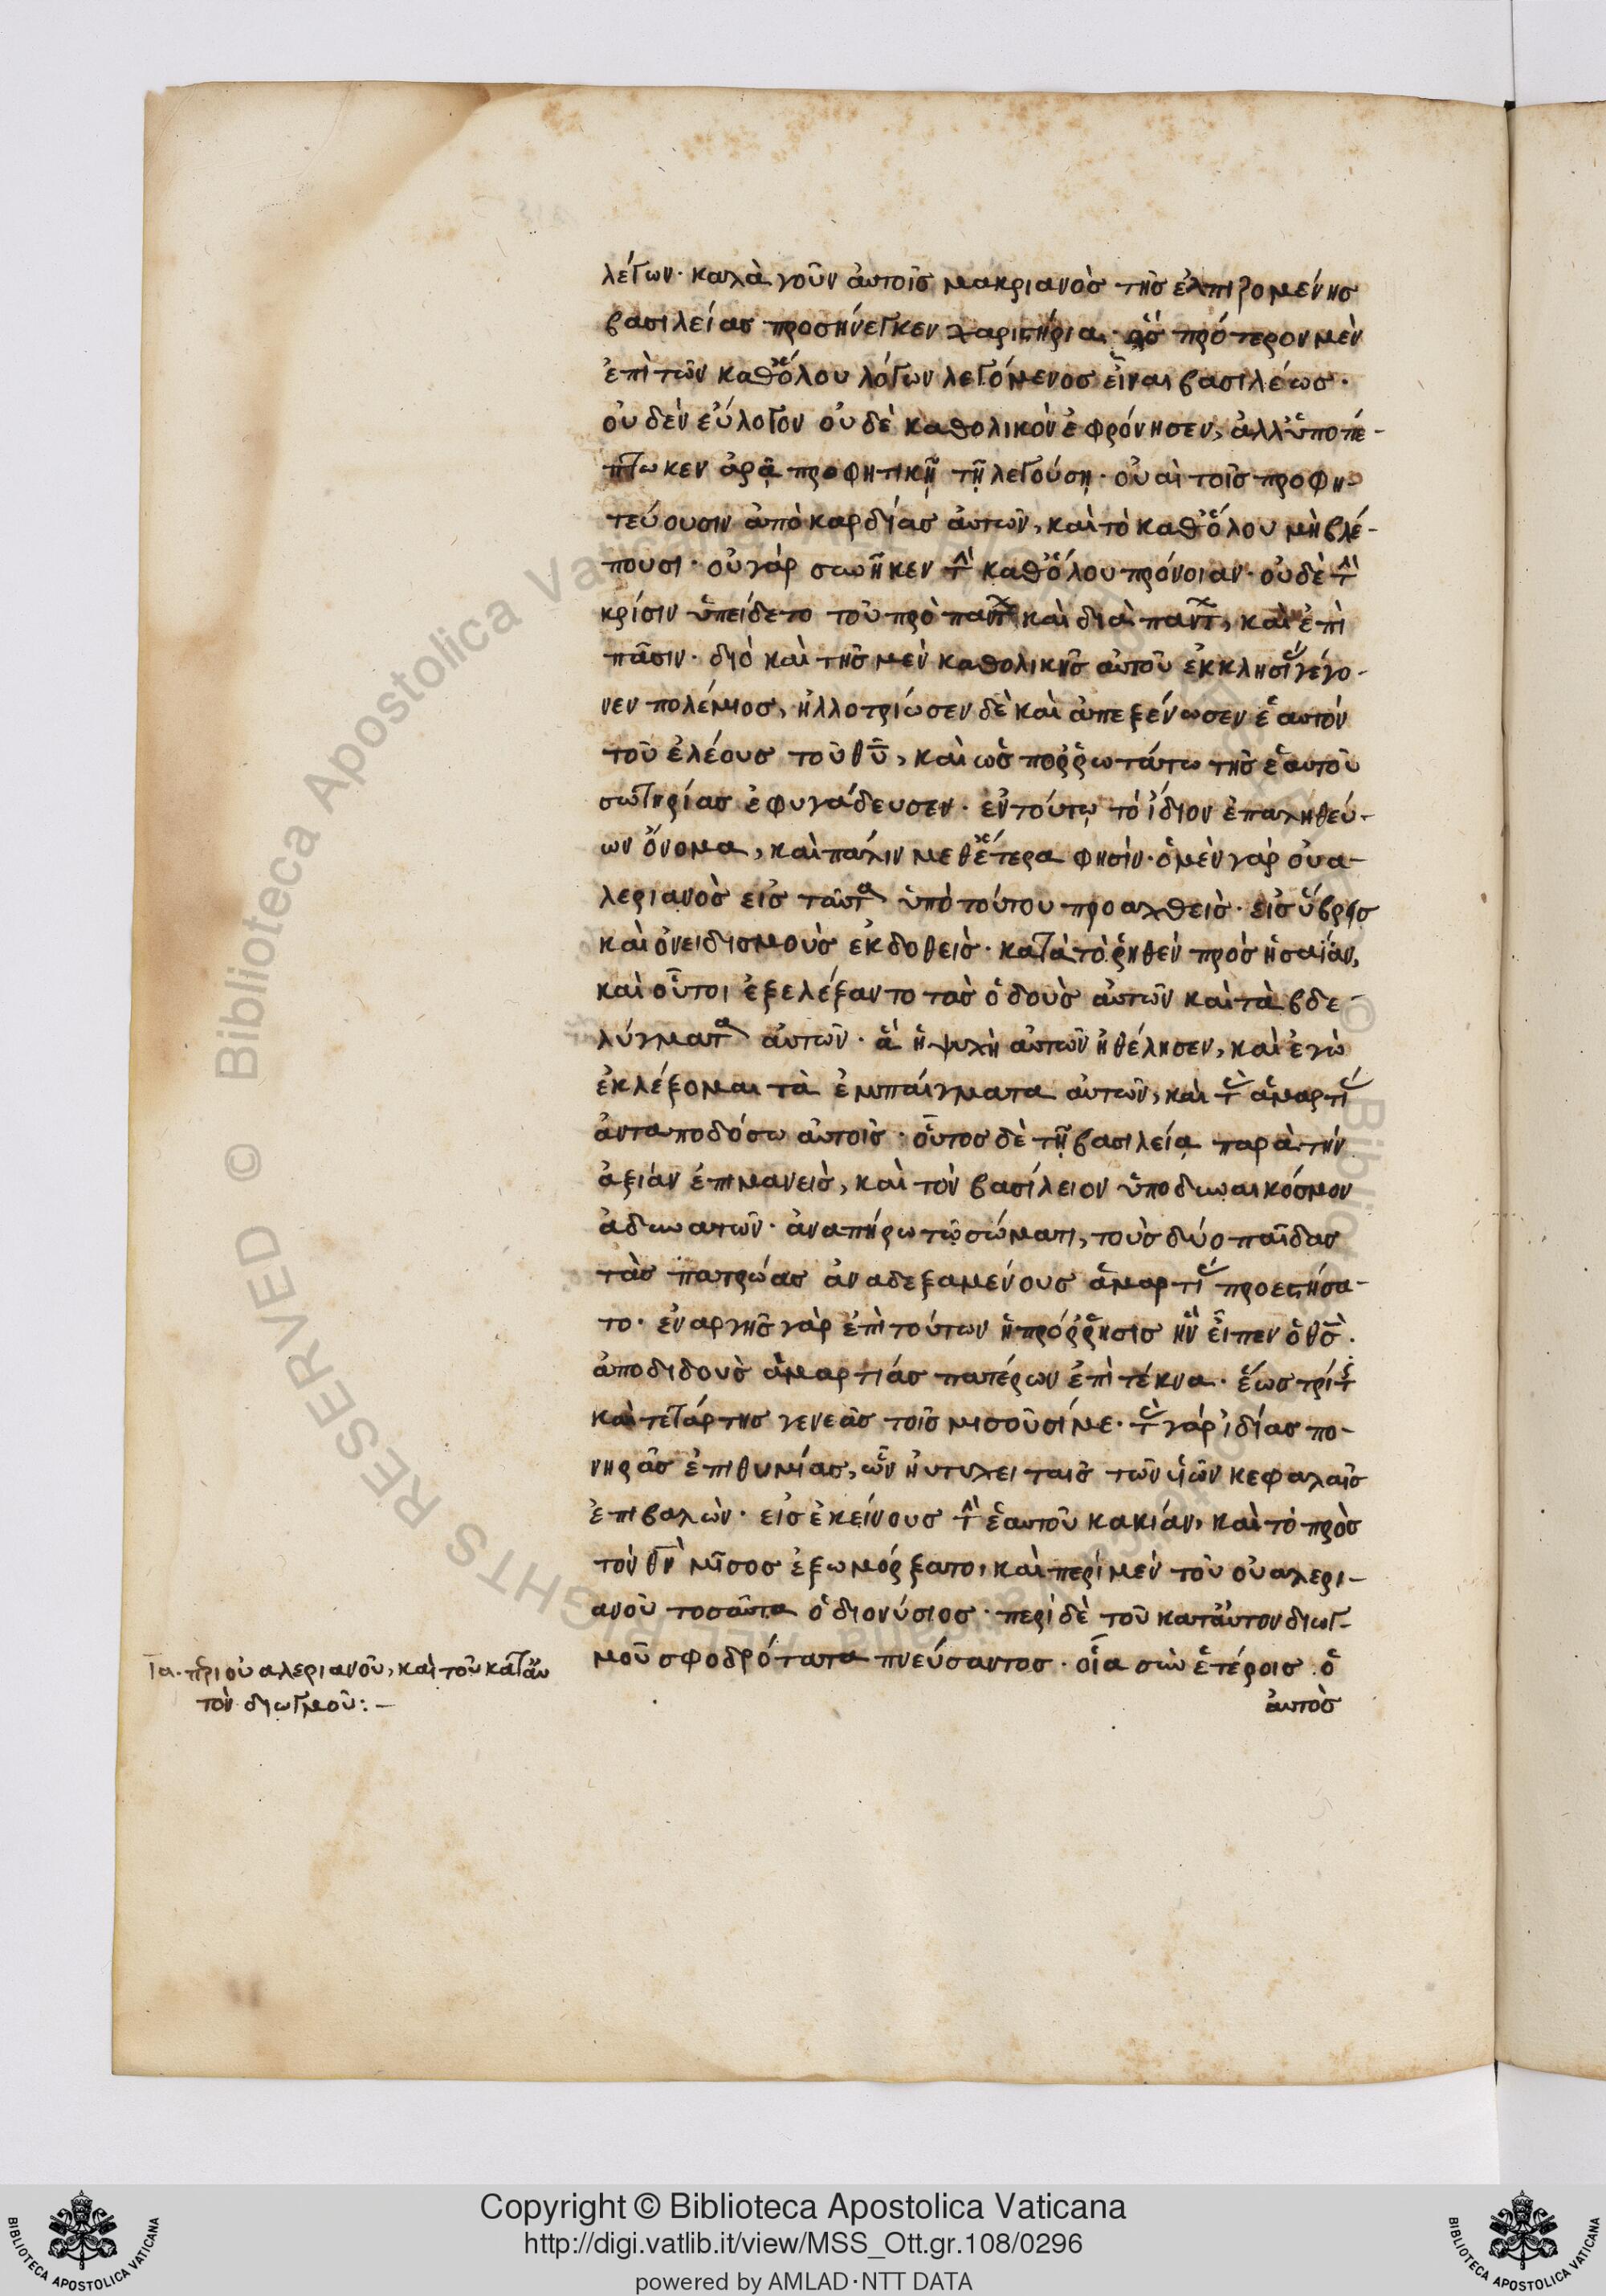 λέγων· καλὰ γοῦν αὐτοῖς μακριανὸς τῆς ἐλπιζομένης
βασιλείας προσήνεγκεν χαριστήρια· ὃς πρότερον μὲν
ἐπὶ τῶν καθ' ὅλου λόγων λεγόμενος εἶναι βασιλέως·
οὐδὲν εὔλογον οὐδὲ καθολικὸν ἐφρόνησεν, ἀλλ' ὑποπέ-
πτωκεν ἀρᾷ προφητικῇ τῇ λεγούσῃ· οὐαὶ τοῖς προφη-
τεύουσιν ἀπὸ καρδίας αὐτῶν, καὶ τὸ καθ' ὅλου μὴ βλέ-
πουσι· οὐ γὰρ συνῆκεν τὴν καθ' ὅλου πρόνοιαν· οὐδὲ τὴν
κρίσιν ὑπείδετο τοῦ πρὸ πάντων καὶ διὰ πάντων, καὶ ἐπὶ
πᾶσιν· διὸ καὶ τῆς μὲν καθολικῆς αὐτοῦ ἐκκλησίας γέγο-
νεν πολέμιος, ἠλλοτρίωσεν δὲ καὶ ἀπεξένωσεν ἑαυτὸν
τοῦ ἐλέους τοῦ θῦ, καὶ ὡς πορρωτάτω τῆς ἑαυτοῦ
σωτηρίας ἐφυγάδευσεν· ἐν τούτῳ τὸ ἴδιον ἐπαληθεύ-
ων ὄνομα, καὶ πάλιν μεθ' ἕτερα φησίν· ὁ μὲν γὰρ οὐα-
λεριανὸς εἰς ταῦτα ὑπὸ τούτου προαχθεὶς· εἰς ὕβρεις
καὶ ὀνειδισμοὺς ἐκδοθεὶς· κατὰ τὸ ῥηθὲν πρὸς ἡσαΐαν,
καὶ οὗτοι ἐξελέξαντο τὰς ὁδοὺς αὐτῶν καὶ τὰ βδε-
λύγματα αὐτῶν· ἃ ἡ ψυχὴ αὐτῶν ἠθέλησεν, καὶ ἐγὼ
ἐκλέξομαι τὰ ἐμπαίγματα αὐτῶν, καὶ τὰς ἁμαρτίας
ἀνταποδόσω αὐτοῖς· οὗτος δὲ τῇ βασιλείᾳ παρὰ τὴν
ἀξίαν ἐπιμανεὶς, καὶ τὸν βασίλειον ὑποδῦναι κόσμον
ἀδυνατῶν· ἀναπήρω τῷ σώματι, τοὺς δύο παῖδας
τὰς πατρώας ἀναδεξαμένους ἁμαρτίας προεστήσα-
το· ἐναργὴς γὰρ ἐπὶ τούτων ἡ πρόρρησις ἣν εἶπεν ὁ θς·
ἀποδιδοὺς ἁμαρτίας πατέρων ἐπὶ τέκνα· ἕως τρίτης
καὶ τετάρτης γενεᾶς τοῖς μισοῦσί με· τὰς γὰρ ἰδίας πο-
νηρᾶς ἐπιθυμίας, ὧν ηὐτύχει ταῖς τῶν υἱῶν κεφαλαῖς
ἐπιβαλὼν· εἰς ἐκείνους τὴν ἑαυτοῦ κακίαν, καὶ τὸ πρὸς
τὸν θν μῖσος ἐξωμόρξατο, καὶ περὶ μὲν τοῦ οὐαλερι-
ανοῦ τοσαῦτα ὁ διονύσιος· περὶ δὲ τοῦ κατ' αὐτὸν διωγ-
μοῦ σφοδρότατα πνεύσαντος· οἷα σὺν ἑτέροις ὁ
αὐτὸς
ια. περὶ οὐαλεριανοῦ, καὶ τοῦ κατ' αὐ
τὸν διωγμοῦ:–
Copyright © Biblioteca Apostolica Vaticana
http://digi.vatlib.it/view/MSS_Ott.gr.108/0296
powered by AMLAD·NTT DATA
BIBLIOTECA APOSTOLICA VATICANA
BIBLIOTECA APOSTOLICA VATICANA